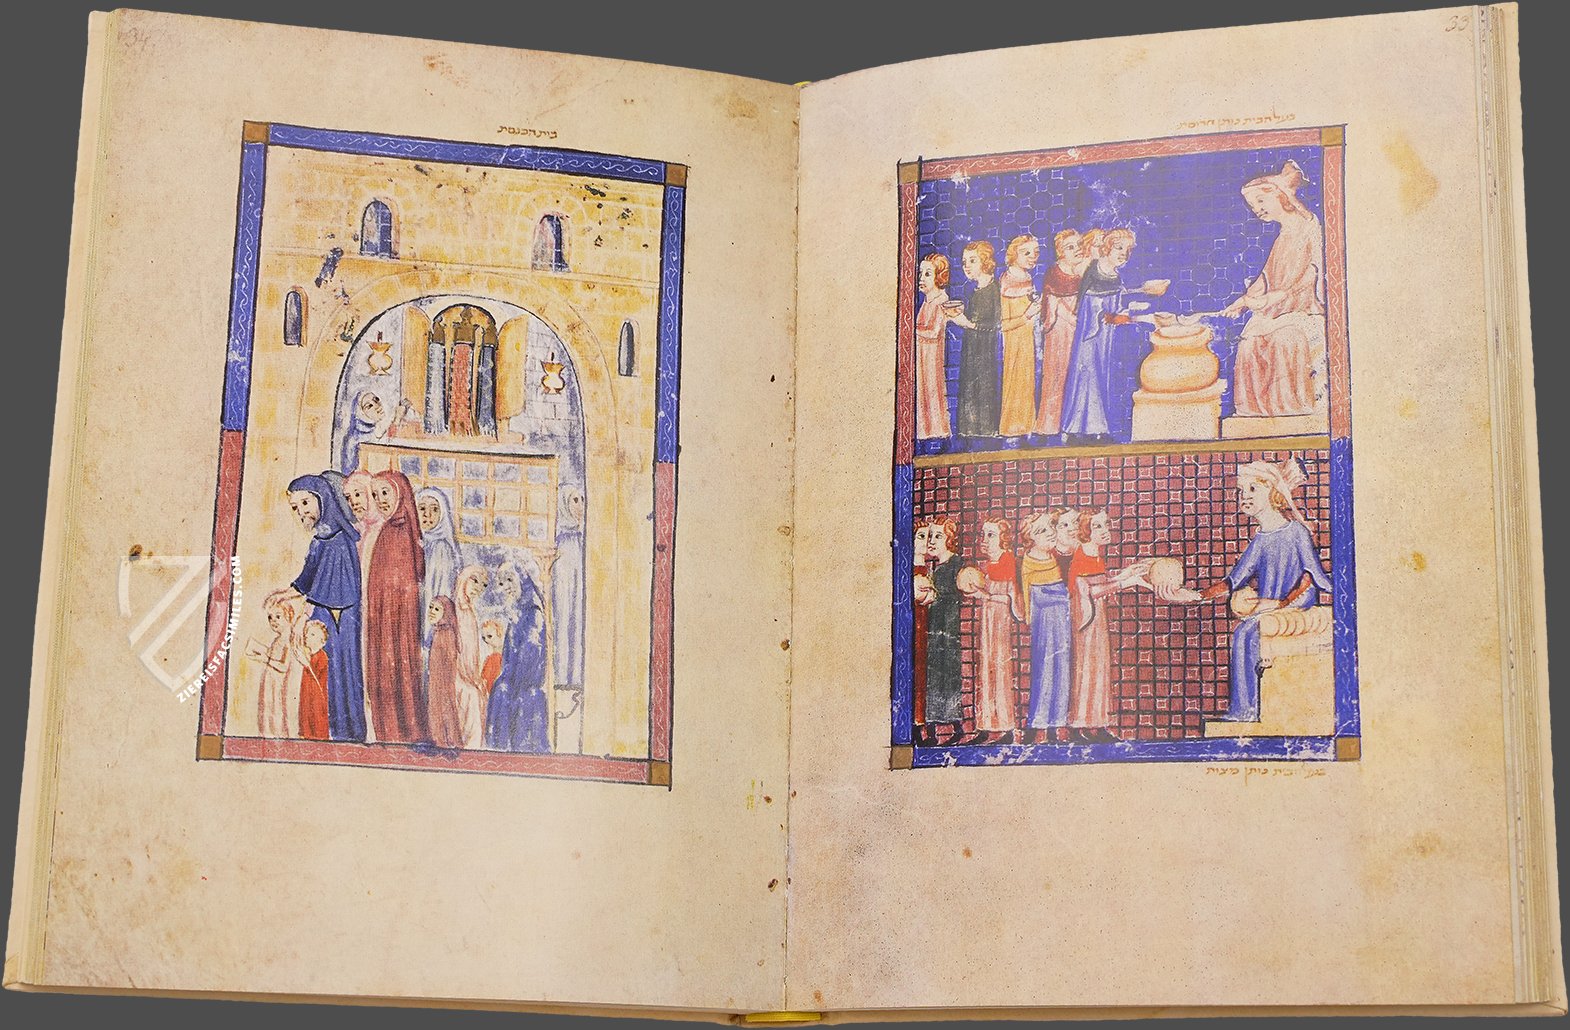 33
בעל הבית נותן חרוסת
בעל הבית נותן מצות
34
בית הכנסת
ZIEREISFACSIMILES.COM